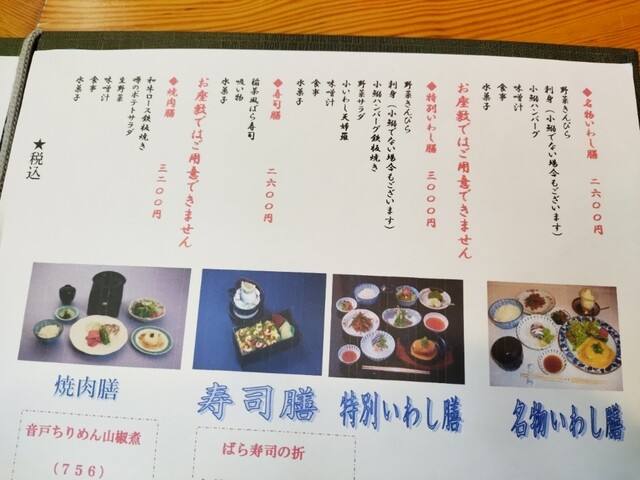 ◆名物いわし膳 二六〇〇円
野菜きんぴら
刺身（小鰯でない場合もございます）
小鰯ハンバーグ
味噌汁
食事
水菓子
お座敷ではご用意できません
◆特別いわし膳 三〇〇〇円
野菜きんぴら
刺身（小鰯でない場合もございます）
小鰯ハンバーグ鉄板焼き
野菜サラダ
小いわし天婦羅
味噌汁
食事
水菓子
◆寿司膳 二六〇〇円
稲茶風ばら寿司
吸い物
水菓子
お座敷ではご用意できません
◆焼肉膳 三二〇〇円
和牛ロース鉄板焼き
噂のポテトサラダ
生野菜
味噌汁
食事
水菓子
★税込
焼肉膳
寿司膳
特別いわし膳
名物いわし膳
音戸ちりめん山椒煮
（７５６）
ばら寿司の折